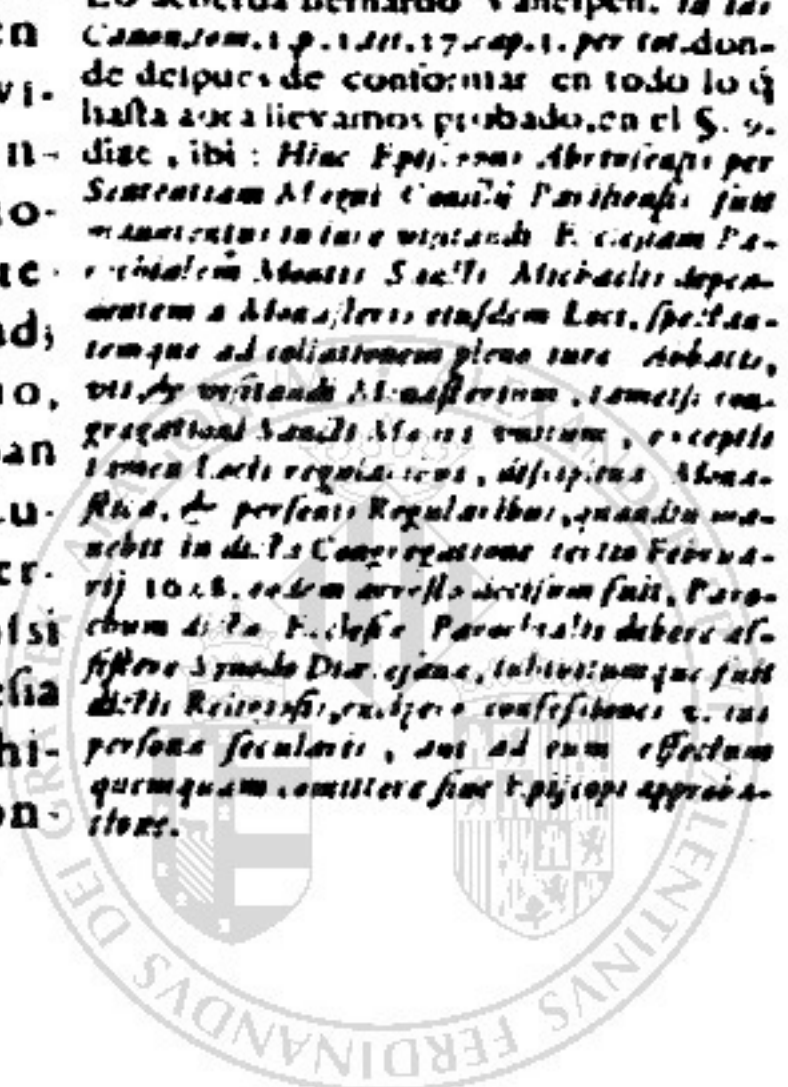 en
vi-
n-
o-
ue
ad;
no,
an
u-
er-
isi
esia
hi-
on-
Bernardo Vanespen. in Ius
Canon. tom. 1. p. 1. tit. 17. cap. 1. per tot. don-
de despues de conformar en todo lo q̃
hasta aora llevamos probado, en el §. 9.
dize, ibi: Hinc Episcopus Abrincensis per
Sententiam Magni Consilii Parisiensis fuit
manutentus in iure visitandi Ecclesiam Pa-
rochialem Montis Sancti Michaelis depen-
dentem a Monasterio eiusdem Loci, spectan-
temque ad collationem pleno iure Abbatis,
visitandi Monasterium, tametsi con-
gregationi Sancti Mauri unitum, exceptis
tamen Locis regularibus, disciplina Mona-
stica, & personis Regularibus, quandiu ma-
nebit in dicta Congregatione tertia Februa-
rij eodem arresto decisum fuit, Paro-
chum dictæ Ecclesiæ Parochialis debere as-
sistere Synodo Diœcesanæ, inhibitumque fuit
dictis Religiosis, excipere confessiones
personæ secularis, aut ad eum effectum
quemquam comittere sine Episcopi approba-
tione.
GRA EX ARAGONVM ALEXANDER VALENTINVS FERDINANDVS DEI